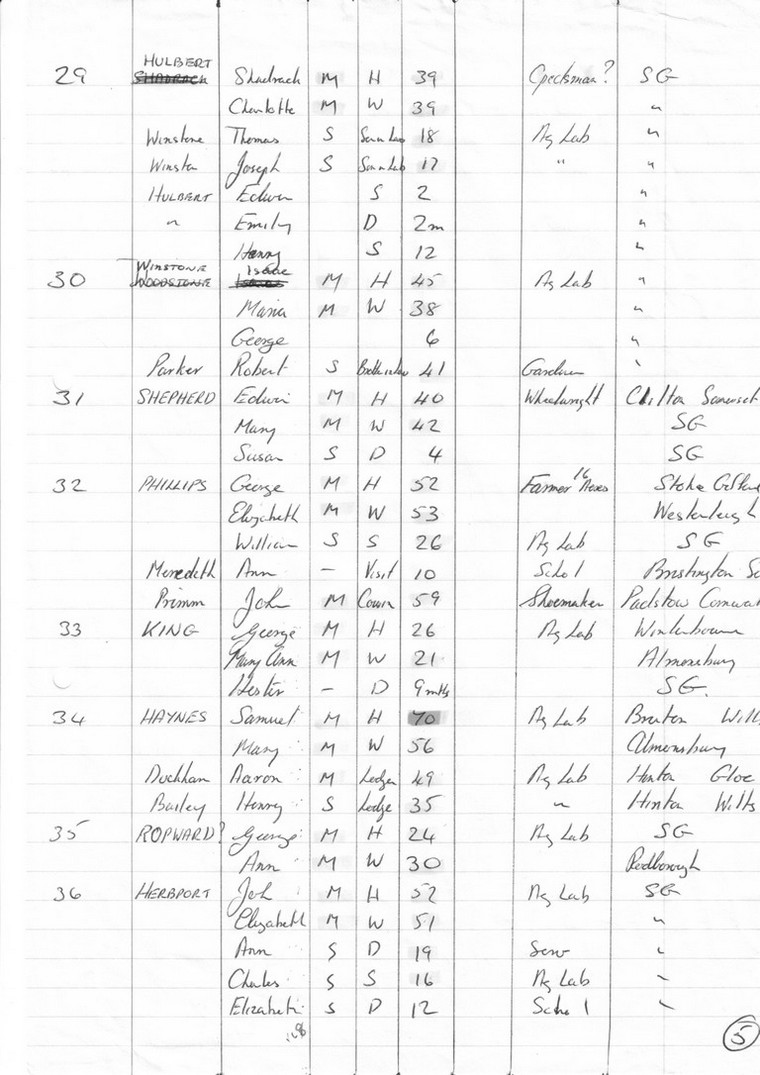 HULBERT
29 SHADRACH Shadrach M H 39 Specksman? SG
Charlotte M W 39 "
Winstone Thomas S Son in Law 18 Ag Lab "
Winston Joseph S Son in Lab 17 " "
HULBERT Edwin S 2 "
" Emily D 2m "
Henry S 12 "
WINSTONE Isaac
30 WOODSTONE M H 45 Ag Lab "
Maria M W 38 "
George 6 "
Parker Robert S Brother in law 41 Gardener "
31 SHEPHERD Edwin M H 40 Wheelwright Clifton Somerset
Mary M W 42 SG
Susan S D 4 SG
32 PHILLIPS George M H 52 Farmer 16 Acres Stoke
Elizabeth M W 53 Westerleigh
William S S 26 Ag Lab SG
Meredith Ann - Visit 10 Schol Brislington So
Primm John M Cousin 59 Shoemaker Padstow Cornwa
33 KING George M H 26 Ag Lab Winterbourne
Mary Ann M W 21 Almonsbury
Hester - D 9mths SG.
34 HAYNES Samuel M H 70 Ag Lab Braxton Wilt
Mary M W 56 Almonsbury
Duckham Aaron M Lodger 49 Ag Lab Hinton Gloc
Bailey Henry S Lodge 35 " Hinton Wilts
35 ROPWARD? George M H 24 Ag Lab SG
Ann M W 30 Rodborough
36 HERBPORT Joh M H 52 Ag Lab SG
Elizabeth M W 51 "
Ann S D 19 Serv "
Charles S S 16 Ag Lab "
Elizabeth S D 12 Schol "
5